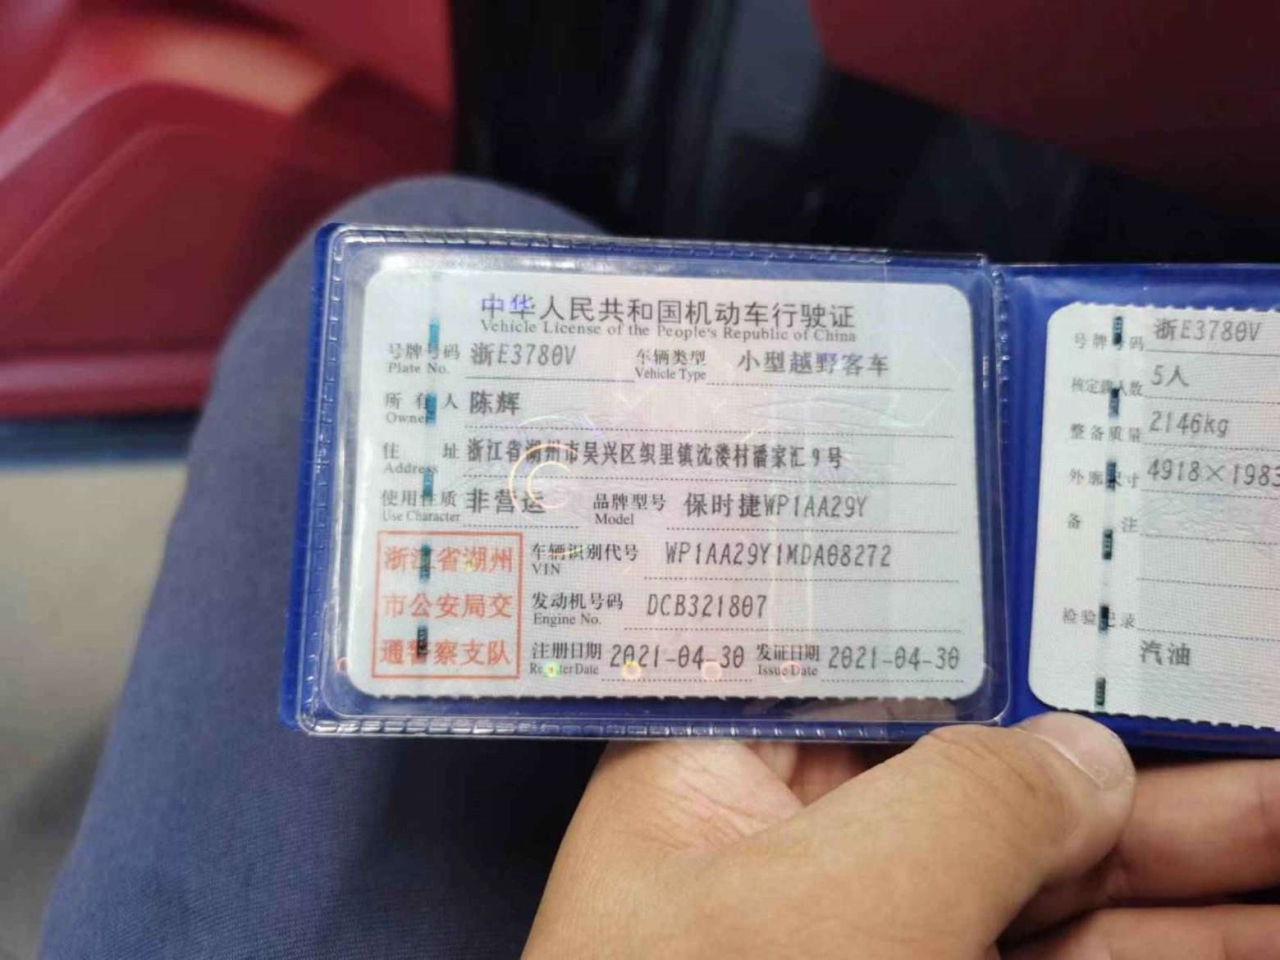 中华人民共和国机动车行驶证
Vehicle License of the People's Republic of China
号牌号码 浙E3780V 车辆类型 小型越野客车
Plate No. Vehicle Type
所有人 陈辉
Owner
住址 浙江省湖州市吴兴区织里镇沈溇村潘家汇9号
Address
使用性质 非营运 品牌型号 保时捷WP1AA29Y
Use Character Model
浙江省湖州
市公安局交
通警察支队
车辆识别代号 WP1AA29Y1MDA08272
VIN
发动机号码 DCB321807
Engine No.
注册日期 2021-04-30 发证日期 2021-04-30
Register Date Issue Date
号牌号码 浙E3780V
核定载人数 5人
整备质量 2146kg
外廓尺寸 4918×1983
备注
检验记录
汽油